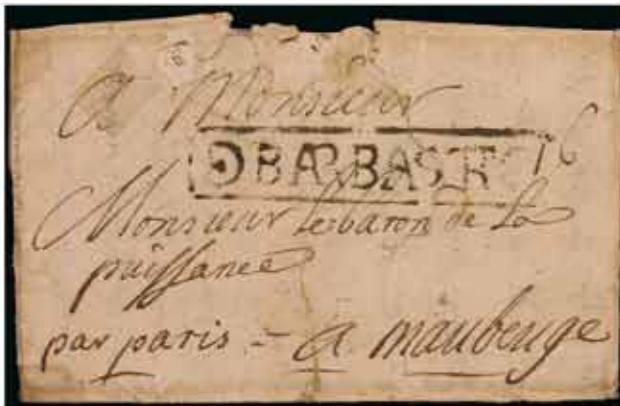 a Monsieur
BARBASTR
Monsieur le baron de la
puissance
par paris = a maubeuge